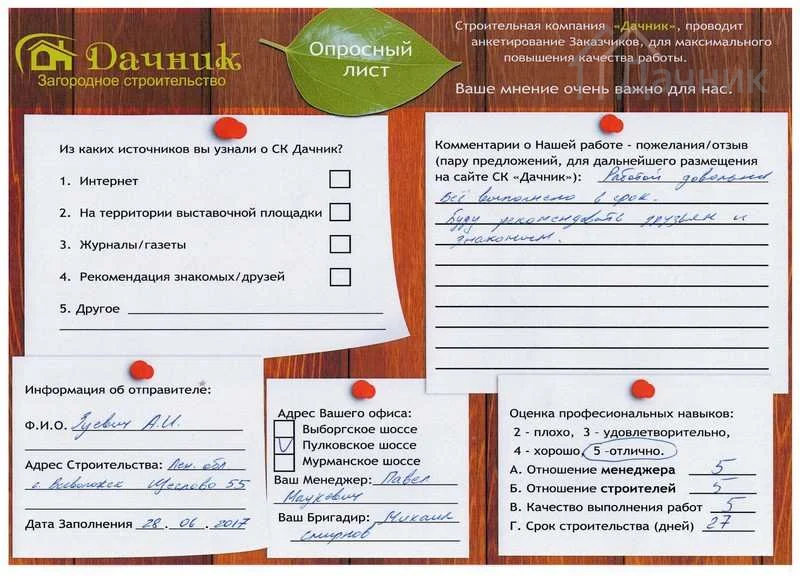 Дачник
Загородное строительство
Опросный
лист
Строительная компания «Дачник», проводит
анкетирование Заказчиков, для максимального
повышения качества работы.
Ваше мнение очень важно для нас.
Дачник
Из каких источников вы узнали о СК Дачник?
1. Интернет
2. На территории выставочной площадки
3. Журналы/газеты
4. Рекомендация знакомых/друзей
5. Другое
Комментарии о Нашей работе - пожелания/отзыв
(пару предложений, для дальнейшего размещения
на сайте СК «Дачник»): Работой довольны
Всё выполнено в срок.
Буду рекомендовать друзьям и
знакомым.
Информация об отправителе:
Ф.И.О. Зуевич А.И.
Адрес Строительства: Лен. обл
г. Всеволожск Щеглово 55
Дата Заполнения 28 . 06 . 2017
Адрес Вашего офиса:
Выборгское шоссе
V Пулковское шоссе
Мурманское шоссе
Ваш Менеджер: Павел
Маукевич
Ваш Бригадир: Михаил
Смирнов
Оценка професиональных навыков:
2 - плохо, 3 - удовлетворительно,
4 - хорошо, 5 -отлично.
А. Отношение менеджера 5
Б. Отношение строителей 5
В. Качество выполнения работ 5
Г. Срок строительства (дней) 27